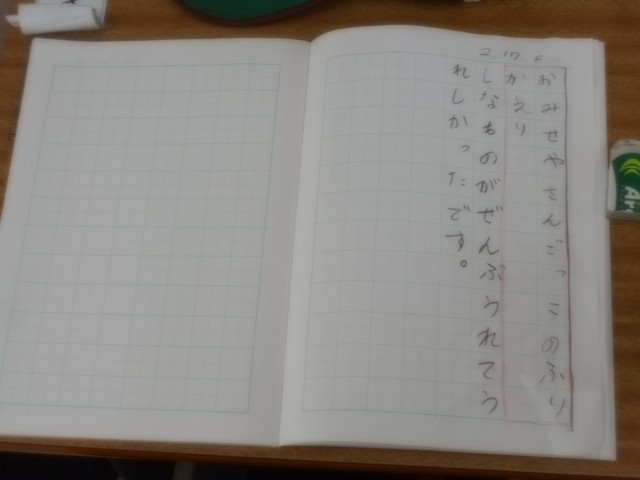 2 17
おみせやさんごっこのふり
かえり
しなものがぜんぶうれてう
れしかったです。